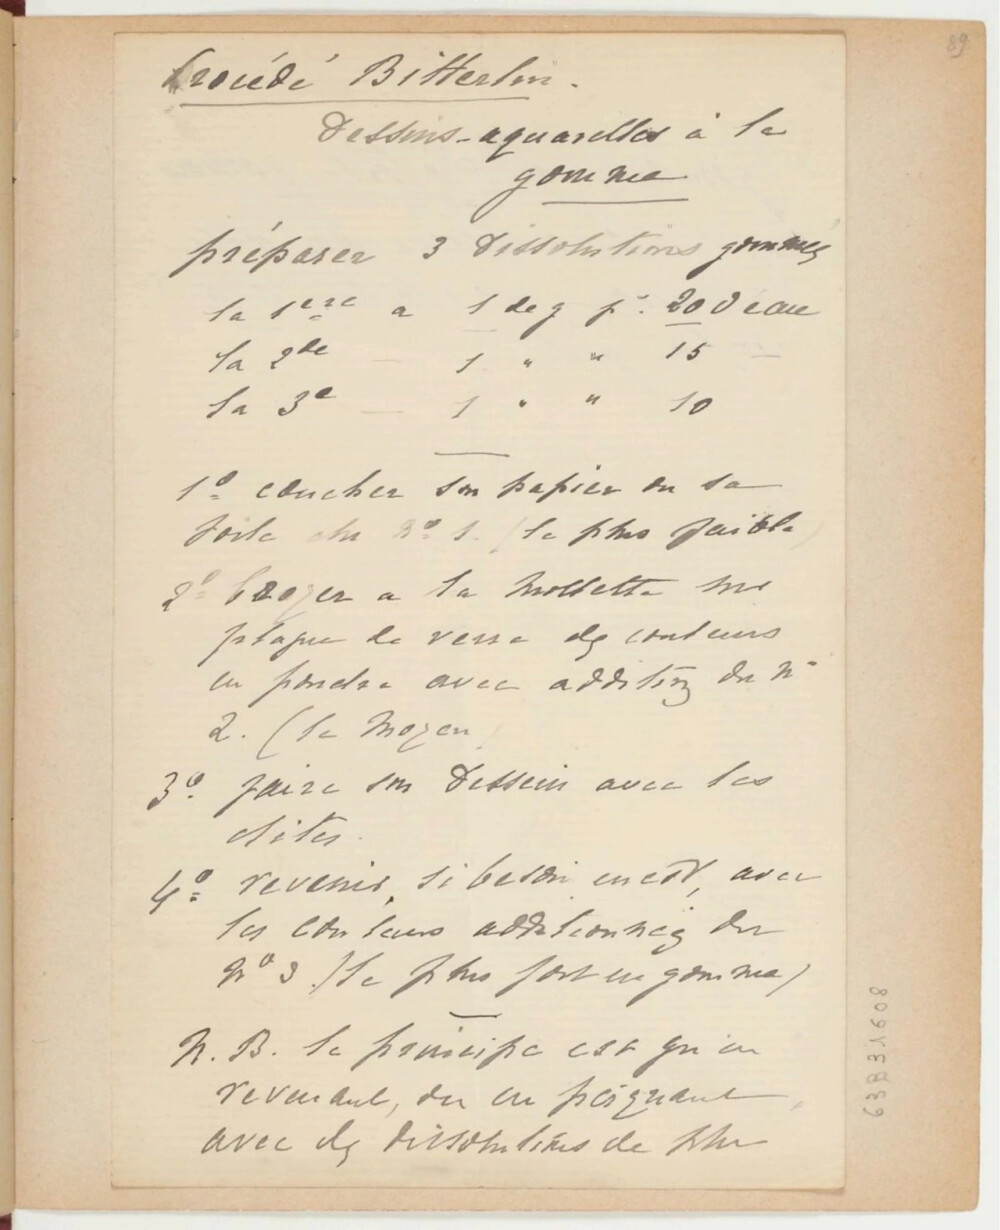 89
Procédé Bitterlin.
Dessins-aquarelles à la
gomme
préparer 3 dissolutions gommées
la 1ere a 1 de g pr. 20 d'eau
la 2de — 1 " " 15 —
la 3e — 1 " " 10
1o coucher son papier ou sa
toile du no 1. (le plus faible)
2o broyer a la mollette sur
plaque de verre des couleurs
en poudre avec addition du no
2. (le moyen
3o. faire son dessin avec les
dites.
4o revenir, si besoin en est, avec
les couleurs additionnées du
no 3 (le plus fort en gomme)
N. B. le principe est qu'en
revenant, ou en peignant,
avec des dissolutions de plus
63B31608